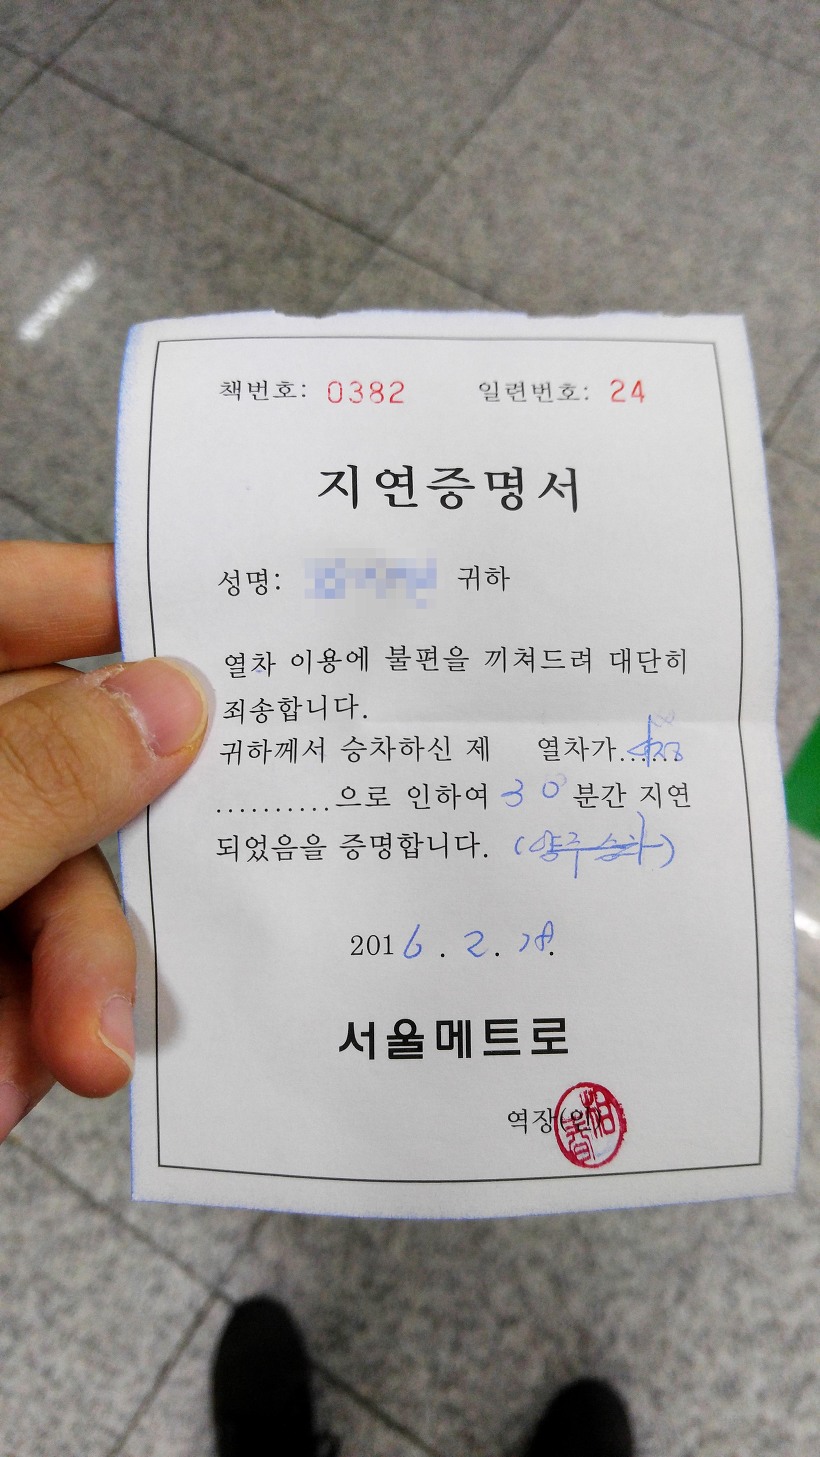 책번호: 0382 일련번호: 24
지연증명서
성명: 귀하
열차 이용에 불편을 끼쳐드려 대단히
죄송합니다.
귀하께서 승차하신 제 열차가......
..........으로 인하여 30 분간 지연
되었음을 증명합니다. (양주 승차)
2016. 2. 28.
서울메트로
역장(인)